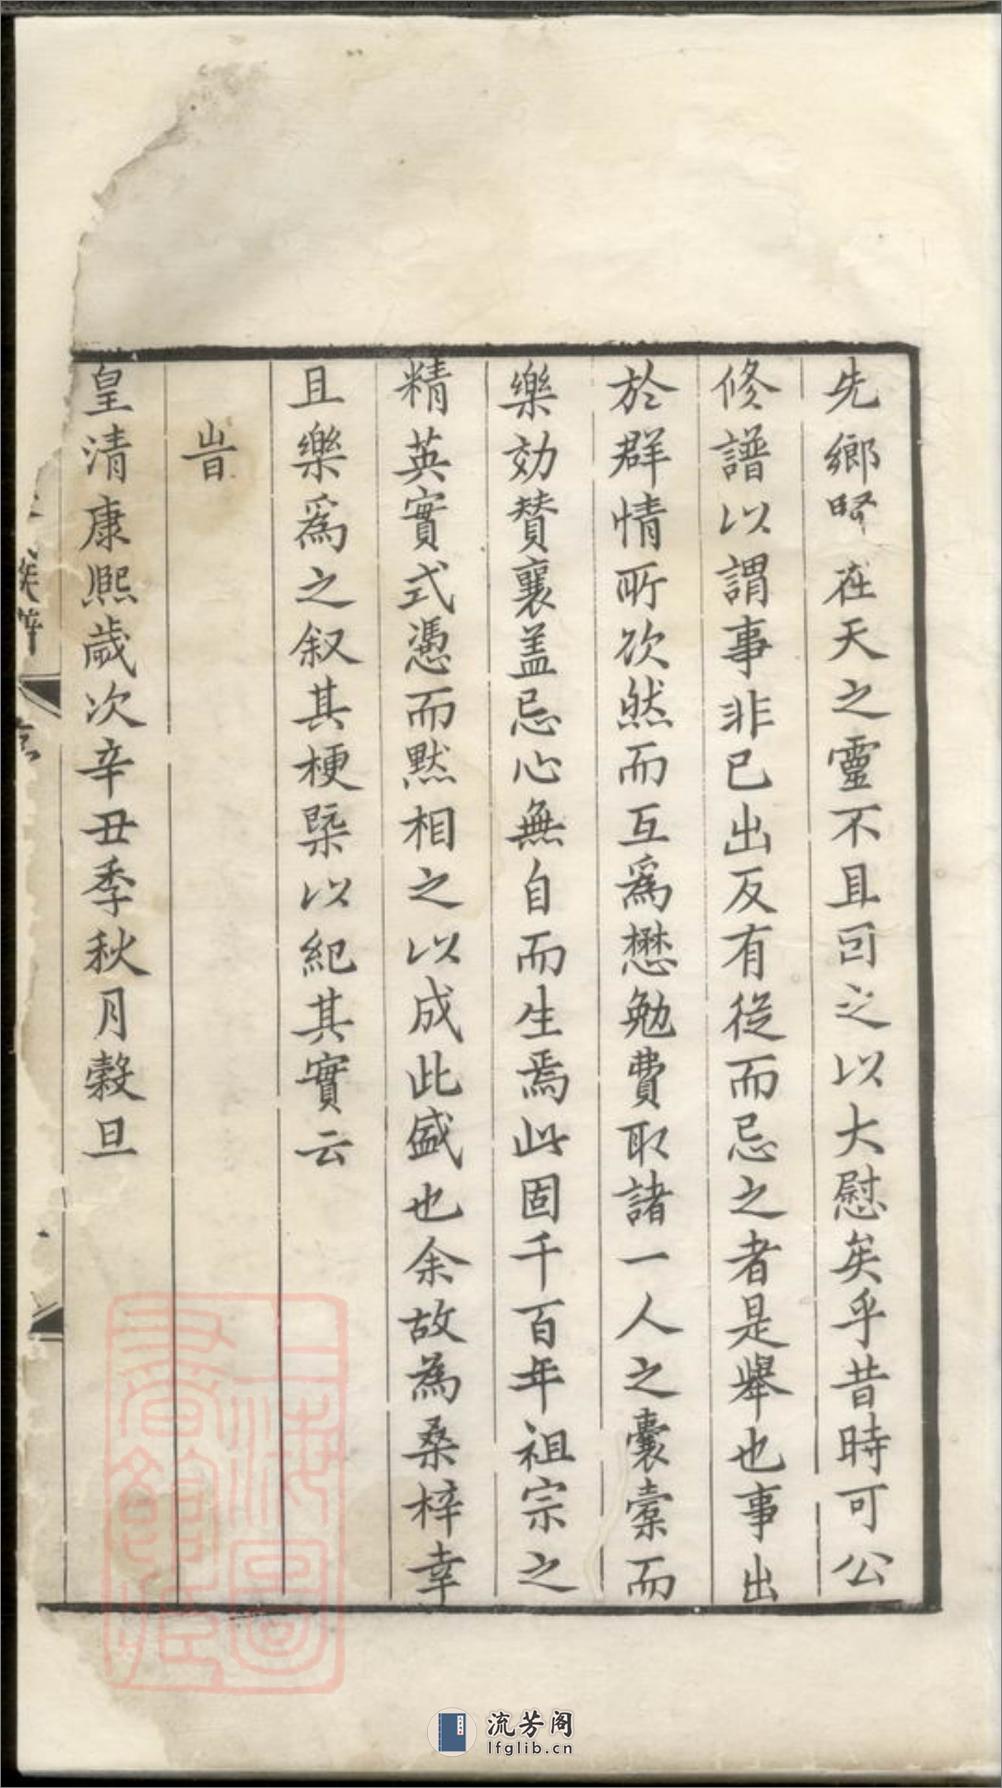 先鄉賢在天之靈不且回之以大慰矣乎昔時可公
修譜以謂事非已出反有從而忌之者是舉也事出
於群情所欲然而互為懋勉費取諸一人之囊橐而
樂効贊襄盖忌心無自而生焉此固千百年祖宗之
精英實式憑而默相之以成此盛也余故為桑梓幸
且樂為之叙其梗槩以紀其實云
旹
皇清康熙歲次辛丑季秋月穀旦
上海圖書館藏
流芳阁
lfglib.cn